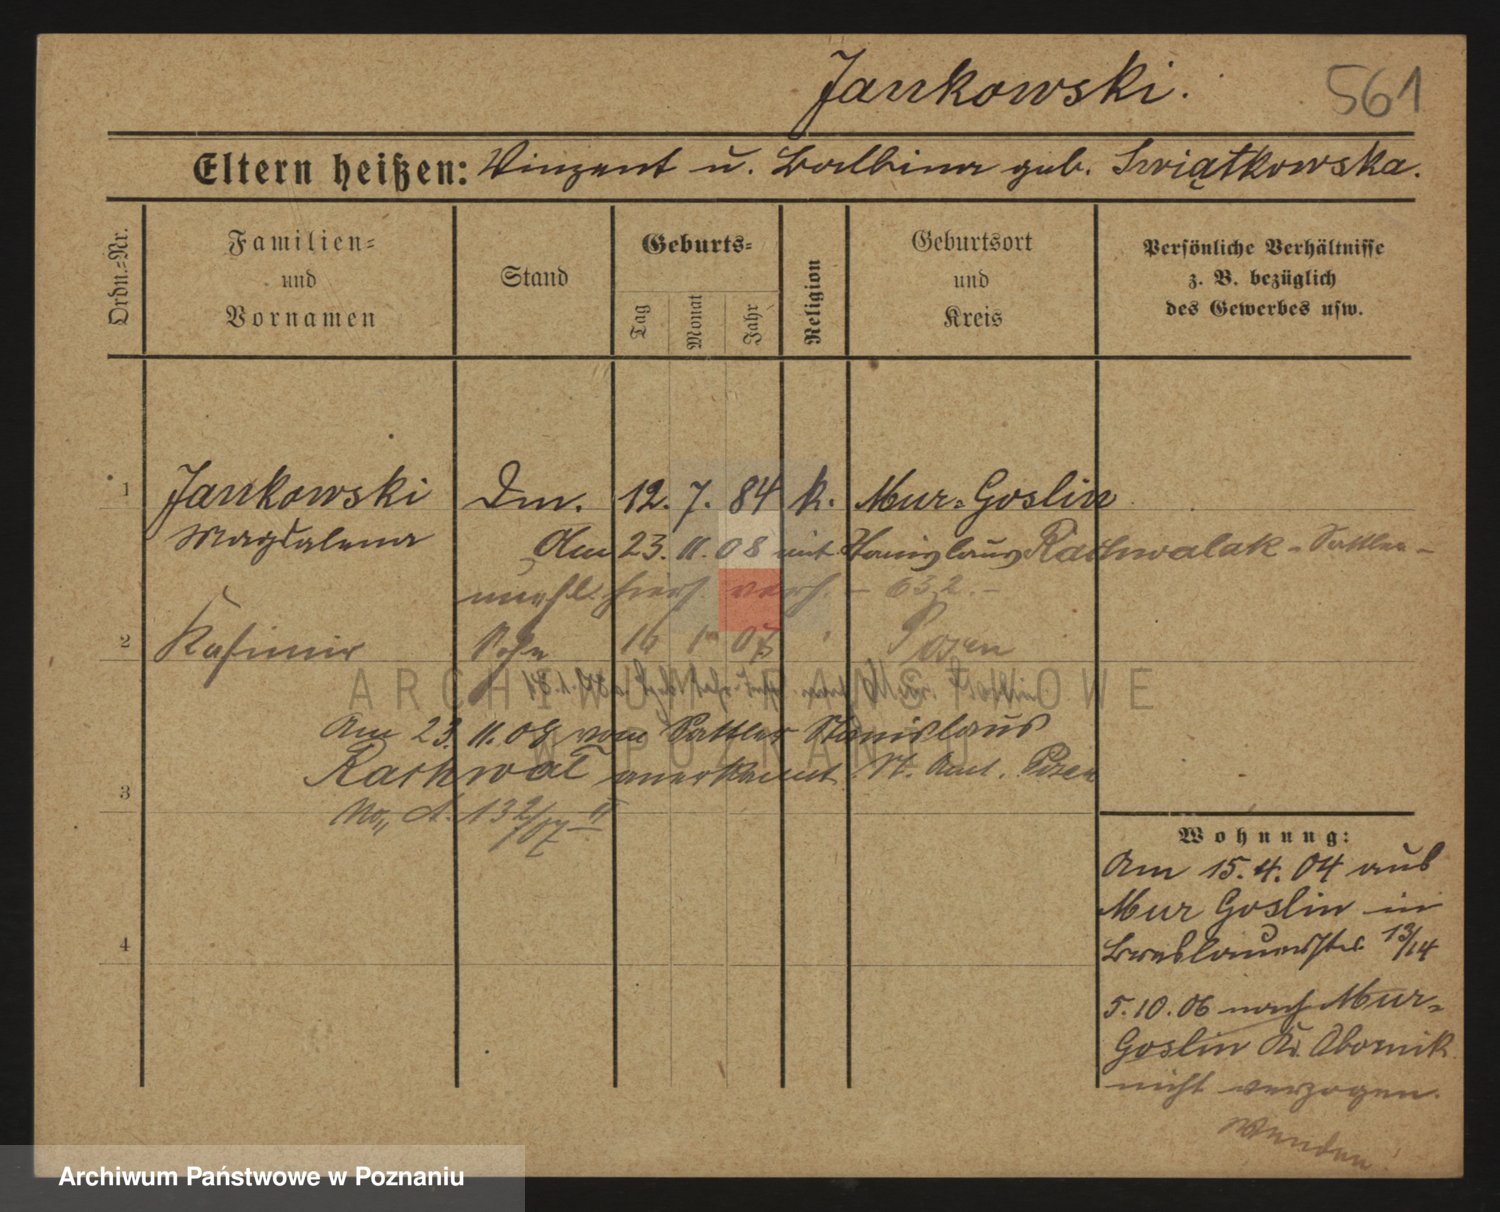 Jankowski.
561
Eltern heißen: Vinzent u. Balbina geb. Swiątkowska.
Ordn.-Nr.
Familien-
und
Vornamen
Stand
Geburts-
Tag
Monat
Jahr
Religion
Geburtsort
und
Kreis
Persönliche Verhältnisse
z. B. bezüglich
des Gewerbes usw.
1 Jankowski Dm. 12. 7. 84 k. Mur-Goslin
Magdalena
Am 23. 11. 08 mit Stanislaus Rachwalak - Sattler -
hier verh. - 632. -
2 Kasimir Sohn 16 1 07 Posen
Am 23. 11. 08 vom Sattler Stanislaus
Rachwał anerkannt St. Amt. Posen
3
No,, A. 132/07 II
4
Wohnung:
Am 15. 4. 04 aus
Mur Goslin in
Breslauerstr. 13/14
5. 10. 06 nach Mur-
Goslin Kr. Obornik
nicht verzogen.
Wenden
ARCHIWUM PAŃSTWOWE
W POZNANIU
Archiwum Państwowe w Poznaniu